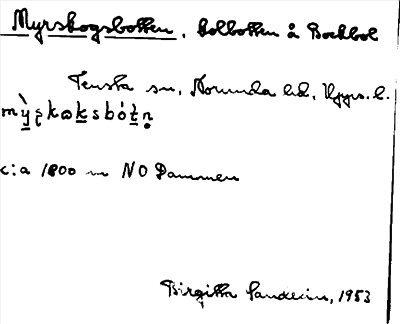 Myrskogsbotten, kolbotten å Bockbol
Tensta sn, Norunda hd, Upps. l.
c:a 1800 m NO Dammen
Birgitta Sandelin, 1953